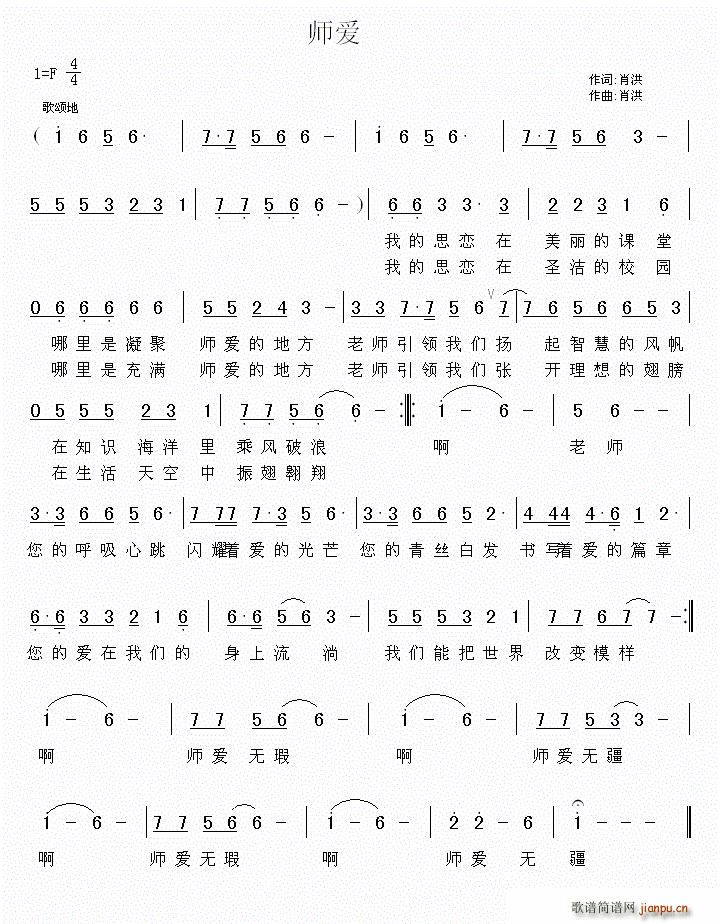 师爱
1=F 4/4
作词:肖洪
作曲:肖洪
歌颂地
( 1 6 5 6· | 7·7 5 6 6 - | 1 6 5 6· | 7·7 5 6 3 - |
5 5 5 3 2 3 1 | 7 7 5 6 6 - ) | 6 6 3 3· 3 | 2 2 3 1 6
我的思恋在 美丽的课堂
我的思恋在 圣洁的校园
0 6 6 6 6 6 | 5 5 2 4 3 - | 3 3 7·7 5 6 ∨ 7 | 7 6 5 6 6 5 3
哪里是凝聚 师爱的地方 老师引领我们扬 起智慧的风帆
哪里是充满 师爱的地方 老师引领我们张 开理想的翅膀
0 5 5 5 2 3 1 | 7 7 5 6 6 - :||: 1 - 6 - | 5 6 - - |
在知识海洋里 乘风破浪 啊 老师
在生活天空中 振翅翱翔
3·3 6 6 5 5 6· | 7 77 7·3 5 6· | 3·3 6 6 5 2· | 4 44 4·6 1 2· |
您的呼吸心跳 闪耀着爱的光芒 您的青丝白发 书写着爱的篇章
6·6 3 3 2 1 6 | 6·6 5 6 3 - | 5 5 5 3 2 1 | 7 7 6 7 7 - :||
您的爱在我们的 身上流淌 我们能把世界 改变模样
1 - 6 - | 7 7 5 6 6 - | 1 - 6 - | 7 7 5 3 3 - |
啊 师爱无瑕 啊 师爱无疆
1 - 6 - | 7 7 5 6 6 - | 1 - 6 - | 2 2 - 6 - | 1 - - - ||
啊 师爱无瑕 啊 师爱 无 疆
歌谱简谱网
jianpu.cn